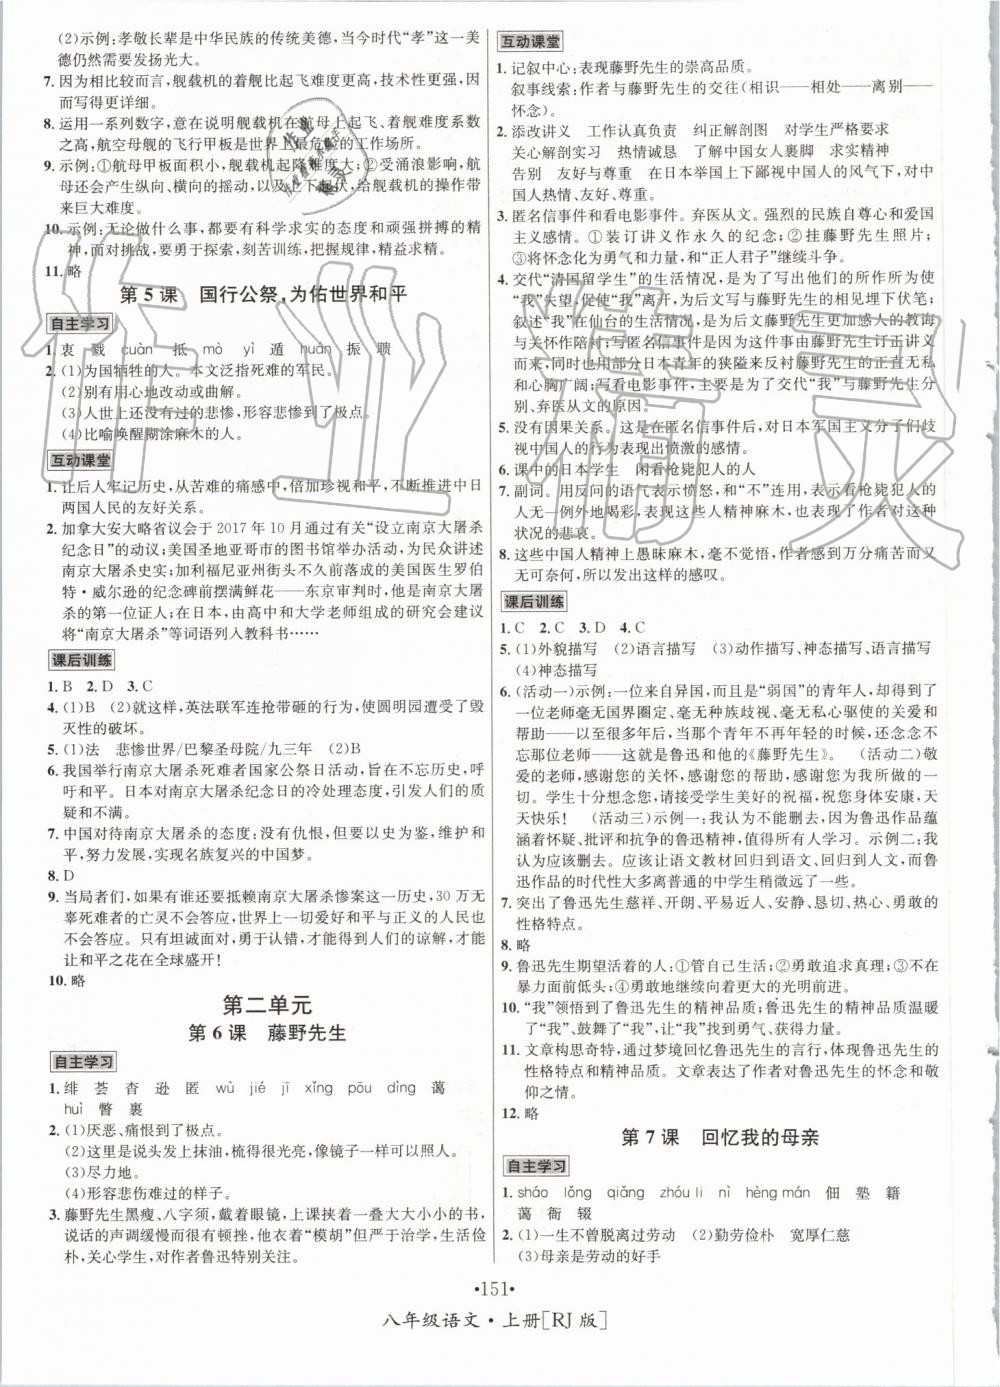 (2)示例:孝敬长辈是中华民族的传统美德,当今时代“孝”这一美
德仍然需要发扬光大。
7. 因为相比较而言,舰载机的着舰比起飞难度更高,技术性更强,因
而写得更详细。
8. 运用一系列数字,意在说明,舰载机在航母上起飞、着舰难度系数
之高,航空母舰的飞行甲板是世界上最危险的工作场所。
9. 示例:①航母甲板面积小,着舰难度大;②受涌浪影响,航
母还会产生纵向、横向的摇动,以及上下起伏,给舰载机的操作带
来巨大难度。
10. 示例:无论做什么事,都要有求实的科学态度和顽强拼搏的精
神,面对挑战,要勇于探索,刻苦训练,把握规律,精益求精。
11. 略
第 5 课 国行公祭,为佑世界和平
自主学习
1. 衷 戮 cuàn 抵 mò yì 遁 huàn 振 聩
2. (1)为国牺牲的人。本文泛指死难的军民。
(2)别有用心地改动或曲解。
(3)人世上还没有过的悲惨,形容悲惨到了极点。
(4)比喻唤醒糊涂麻木的人。
互动课堂
1. 让后人牢记历史,从苦难的痛感中,倍加珍视和平,推进中日
两国人民的友好关系。
2. 加拿大安大略省议会于 2017 年 10 月通过有关“设立南京大屠杀
纪念日”的动议;美国圣地亚哥市的图书馆举办活动,为民众讲述
南京大屠杀史实;加利福尼亚州街头不久前落成的美国医生罗伯
特·威尔逊的纪念碑前摆满鲜花——东京审判时,他是南京大屠
杀的第一位证人;在日本,由高中和大学老师组成的研究会建议
将“南京大屠杀”等词语列入教科书……
课后训练
1. B 2. D 3. C
4. (1)B (2)就这样,英法联军连抢带砸的行为,使圆明园遭受了毁
灭性的破坏。
5. (1)法 悲惨世界/巴黎圣母院/九三年 (2)B
6. 我国举行南京大屠杀死难者国家公祭日活动,旨在反对战争,呼
吁和平。日本对南京大屠杀纪念日的冷处理态度,引发人们的质
疑和不满。
7. 中国对待南京大屠杀的态度:没有仇恨,但要以史为鉴,维护和
平,努力发展,实现名族复兴的中国梦。
8. D
9. 当局者们,如果有谁还要抵赖南京大屠杀惨案这一历史,30 万无
辜死难者的亡灵不会答应,世界上一切爱好和平与正义的人民也
不会答应。只有坦诚面对,勇于认错,才能得到人们的谅解,才能
让和平之花在全球盛开!
10. 略
第二单元
第 6 课 藤野先生
自主学习
1. 绯 荟 杳 逊 匿 wù jié jī xǐng pōu dìng 蔼
huì 瞥 裹
2. (1)厌恶、痛恨到了极点。
(2)这里是说头发上抹油,梳得很光亮,像镜子一样可以照人。
(3)尽力地。
(4)形容悲伤难过的样子。
3. 藤野先生黑瘦、八字须,戴着眼镜,上课挟着一叠大大小小的书,
说话的声调缓慢而很有顿挫。他衣着“模胡”但严于治学,生活俭
朴,关心学生,对作者鲁迅特别关注。
互动课堂
1. 记叙中心:表现藤野先生的崇高品质。
叙事线索:作者与藤野先生的交往(相识——相处——离别——
怀念)。
2. 添改讲义 工作认真负责 纠正解剖图 对学生严格要求
关心解剖实习 热情诚恳 了解中国女人裹脚 求实精神
告别 友好与尊重 在日本举国上下鄙视中国人的风气下,对中
国人友好、尊重。
3. 匿名信事件和看电影事件。弃医从文。强烈的民族自尊心和爱国
主义感情。①装订讲义作永久的纪念;②挂藤野先生照片;
③将怀念化为勇气和力量,和“正人君子”继续斗争。
4. 交代“清国留学生”的生活情况,是为了写出他们的所作所为使
“我”失望,促使“我”离开,为后文写与藤野先生的相识埋下伏笔;
叙述“我”在仙台的生活情况,是为引出藤野先生更加感人的教诲
与关怀作陪衬;写匿名信事件是从藤野先生对“我”的关怀中引出
来的,同时也用部分日本青年的狭隘来反衬藤野先生的正直无私
和心胸广阔;写看电影事件,为了交代“我”与藤野先生分
别、弃医从文的原因。
5. 没有因果关系。这是在匿名信事件后,对日本军国主义分子们歧
视中国人的行为表现出愤激的感情。
6. 课中的日本学生 闲看枪毙犯人的人
7. 副词。用反问的语气表示愤怒,和“不”连用,表示看枪毙犯人的
人无一例外地喝彩,表现出这些人精神麻木,也写出作者对这种
状况的悲哀。
8. 这些中国人精神上愚昧麻木,毫不觉悟,作者感到万分痛苦而又
无可奈何,所以发出这样的感叹。
课后训练
1. C 2. C 3. D 4. C
5. (1)外貌描写 (2)语言描写 (3)动作描写、神态描写、语言描写
(4)神态描写
6. (活动一)示例:一位来自异国,而且是“弱国”的青年人,却得到了
一位老师毫无国界圈定、毫无种族歧视、毫无私心驱使的关爱和
帮助——以至很多年后,当那个青年不再年轻的时候,还念念不
忘那位老师——这就是鲁迅和他的《藤野先生》。 (活动二)敬
爱的老师,感谢您的关怀,感谢您的帮助,感谢您为我所做的一
切。学生十分想念您,请接受学生美好的祝福,祝您身体安康,天
天快乐! (活动三)示例一:我认为不能删去,因为鲁迅作品蕴
涵着怀疑、批评和抗争的鲁迅精神,值得所有人学习。示例二:我
认为应该删去。应该让语文教材回归到语文、回归到人文,而鲁
迅作品的时代性大多离普通的中学生稍微远了一些。
7. 突出了鲁迅先生慈祥、开朗、平易近人、安静、恳切、热心、勇敢的
性格特点。
8. 略
9. 鲁迅先生期望活着的人:①管自己生活;②勇敢追求真理,不在
暴力面前低头;③勇敢地继续向着更大的光明前进。
10. “我”领悟到了鲁迅先生的精神品质;鲁迅先生的精神品质温暖
了“我”、鼓舞了“我”,让“我”找到勇气、获得力量。
11. 文章构思奇特,通过梦境回忆鲁迅先生的言行,体现鲁迅先生的
性格特点和精神品质。文章表达了作者对鲁迅先生的怀念和敬
仰之情。
12. 略
第 7 课 回忆我的母亲
自主学习
1. sháo lǒng qiǎng zhóu li nì hèng mán 佃 塾 籍
蔼 衙 辍
2. (1)一生不曾脱离过劳动 (2)勤劳俭朴 宽厚仁慈
(3)母亲是劳动的好手
·151·
八年级语文·上册[RJ 版]
作业精灵